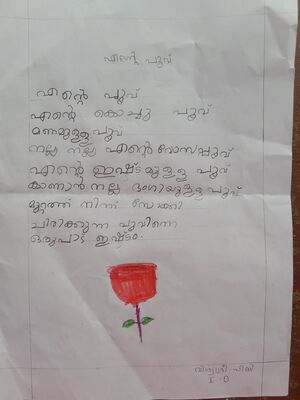 എന്റെ പൂവ്
എന്റെ പൂവ്
എന്റെ കൊച്ചു പൂവ്
മണമുള്ള പൂവ്
നല്ല നല്ല എന്റെ റോസപ്പൂവ്
എന്റെ ഇഷ്ടമുള്ള പൂവ്
കാണാൻ നല്ല ഭംഗിയുള്ള പൂവ്
മുറ്റത്ത് നിന്ന് നോക്കി
ചിരിക്കുന്ന പൂവിന്നെ
ഒരുപാട് ഇഷ്ടം.
I-D